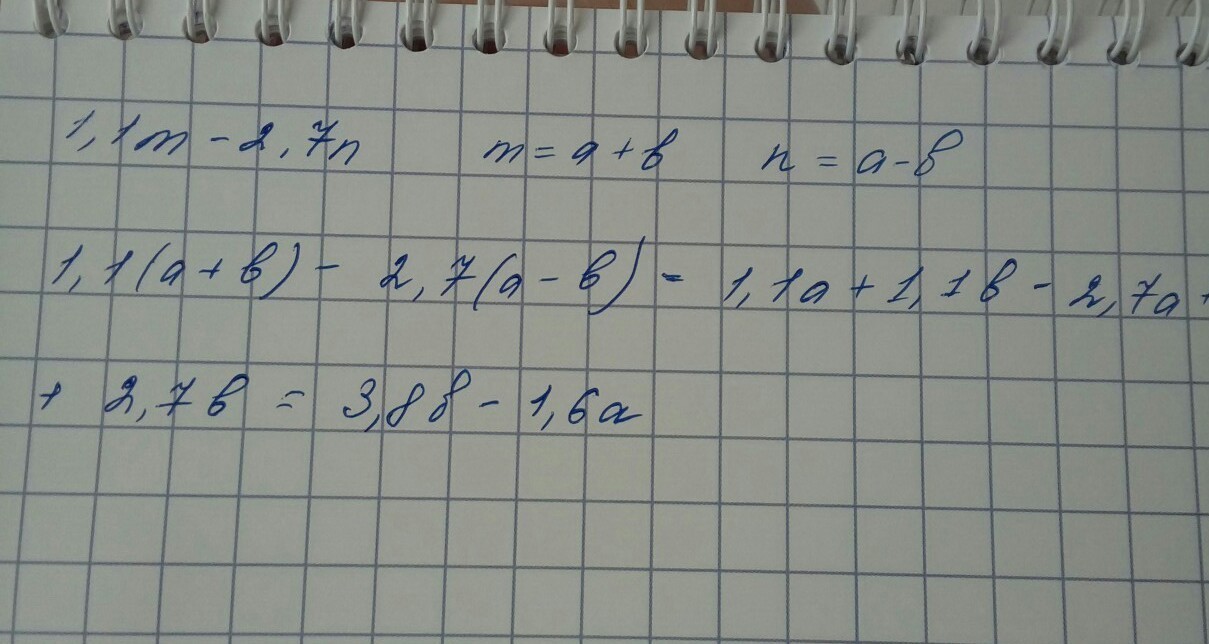 1,1m - 2,7n m = a + b n = a - b
1,1(a + b) - 2,7(a - b) = 1,1a + 1,1b - 2,7a +
+ 2,7b = 3,8b - 1,6a